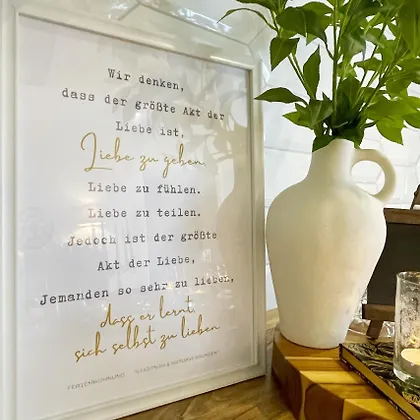 Wir denken,
dass der größte Akt der
Liebe ist,
Liebe zu geben.
Liebe zu fühlen.
Liebe zu teilen.
Jedoch ist der größte
Akt der Liebe,
Jemanden so sehr zu lieben,
dass er lernt,
sich selbst zu lieben
FERIENWOHNUNG